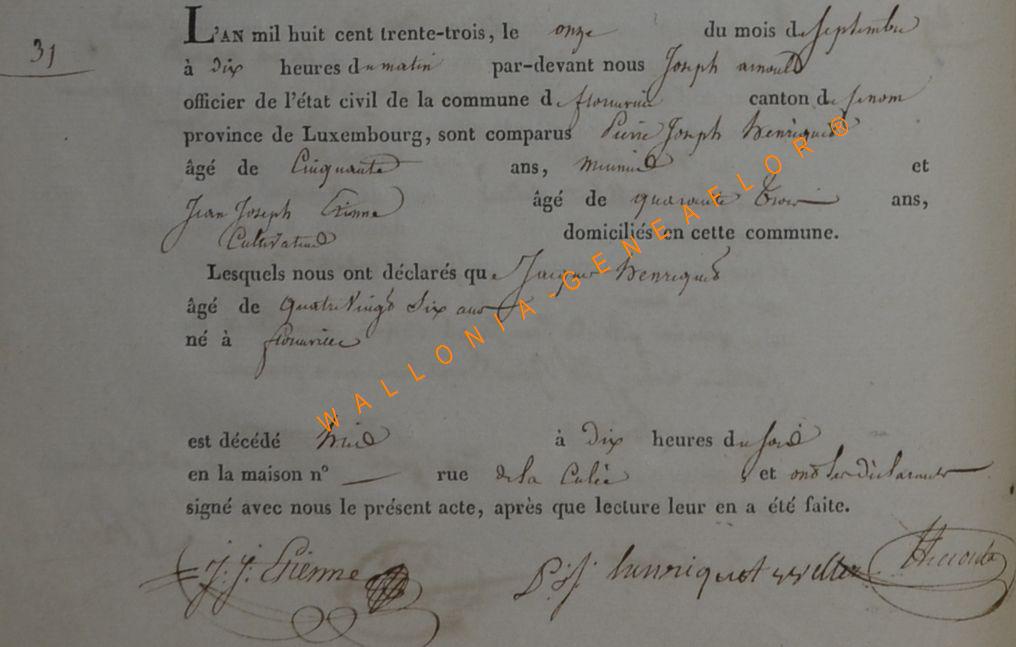 31
L'AN mil huit cent trente-trois, le onze du mois de septembre
à dix heures du matin par-devant nous Joseph arnould
officier de l'état civil de la commune de canton de
province de Luxembourg, sont comparus Pierre Joseph henriquet
âgé de Cinquante ans, et
Jean Joseph Etienne âgé de quarante trois ans,
Cultivateur domiciliés en cette commune.
Lesquels nous ont déclarés que Jacques henriquet
âgé de quatre vingt six ans
né à
est décédé hier à dix heures du soir
en la maison n° — rue de la Culée et ont les déclarants
signé avec nous le présent acte, après que lecture leur en a été faite.
J. J. Etienne P. J. hennriquet
WALLONIA-GENEAFLOR®